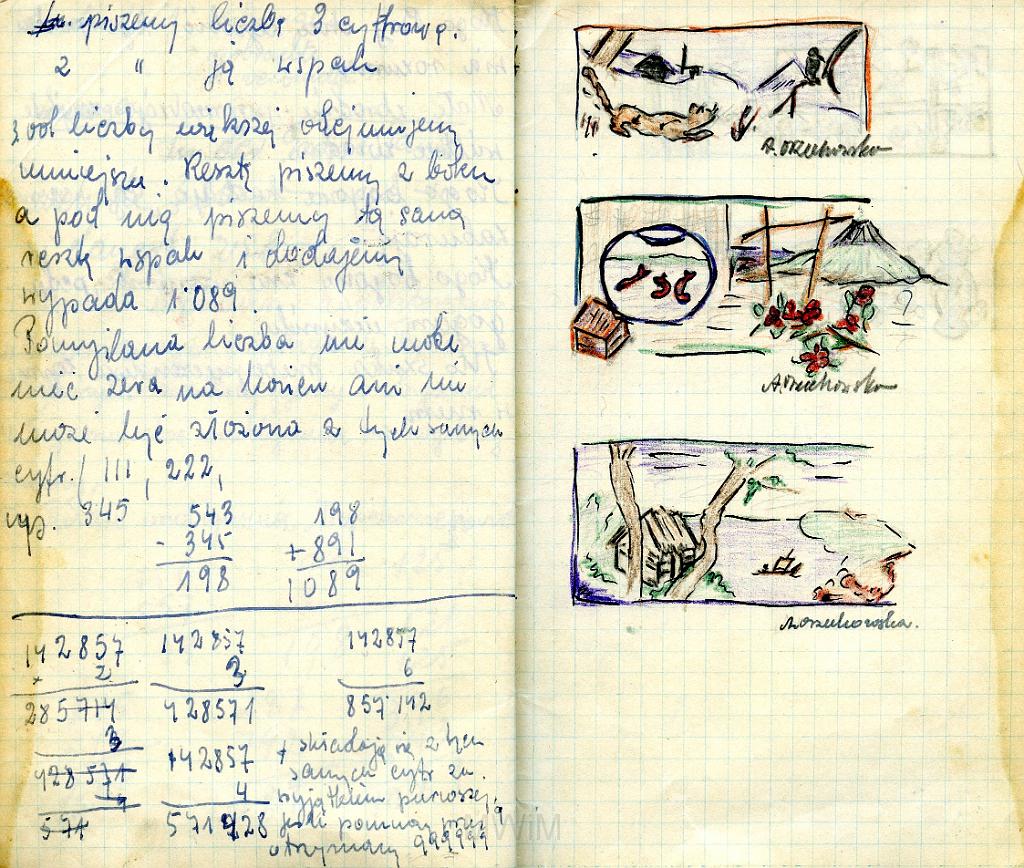 1. piszemy liczbę 3 cyfrową.
2 " ją wspak
3 od liczby większej odejmujemy
mniejszą. Resztę piszemy z boku
a pod nią piszemy tą samą
resztę wspak i dodajemy
wypada 1089.
Pomyślana liczba nie może
mieć zera na końcu ani nie
może być złożona z tych samych
cyfr. (111, 222,
np. 345 543 198
- 345 + 891
198 1089
142857 142857 142857
× 2 3 6
285714 428571 857142
3 142857 + składają się z tych
428571 4 samych cyfr za
571 571428 wyjątkiem pierwszej,
jeśli pomnożę przez
otrzymamy 999999
A. Orzechowska
A. Orzechowska
A. Orzechowska.